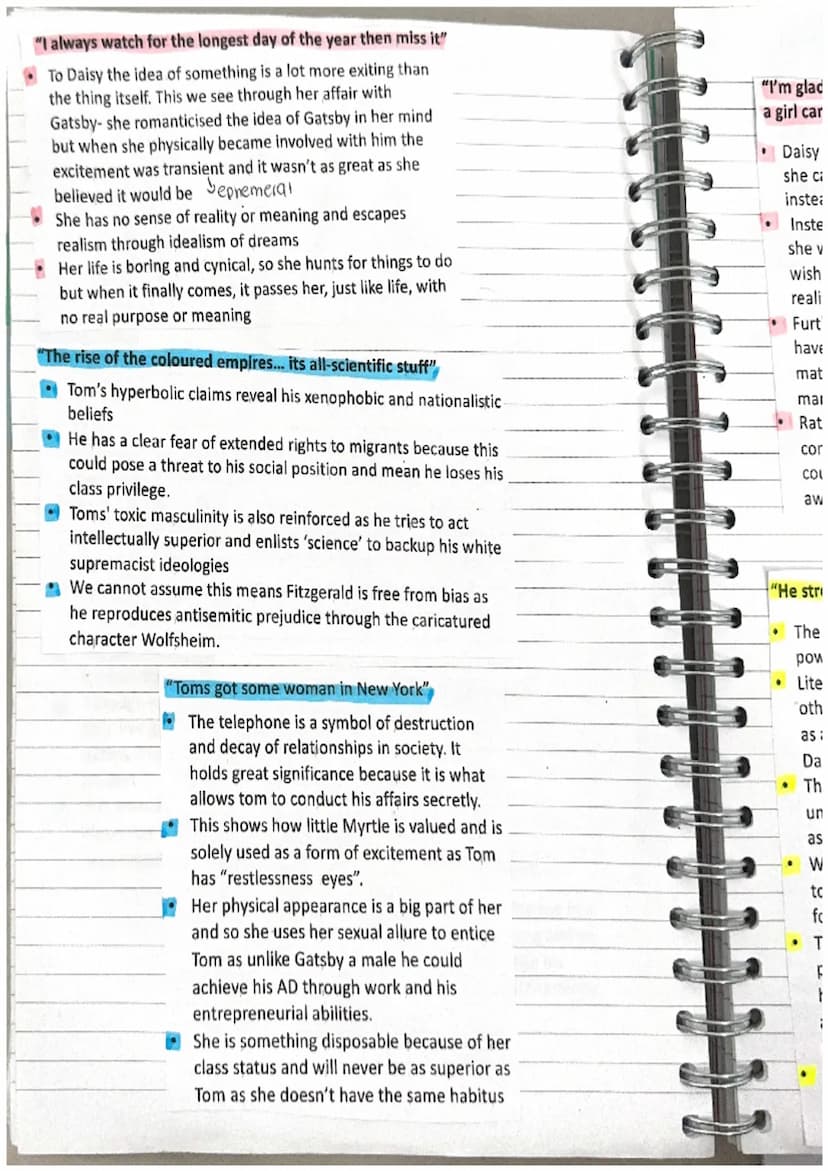 “I always watch for the longest day of the year then miss it”
• To Daisy the idea of something is a lot more exiting than
the thing itself. This we see through her affair with
Gatsby- she romanticised the idea of Gatsby in her mind
but when she physically became involved with him the
excitement was transient and it wasn’t as great as she
believed it would be
• She has no sense of reality or meaning and escapes
realism through idealism of dreams
• Her life is boring and cynical, so she hunts for things to do
but when it finally comes, it passes her, just like life, with
no real purpose or meaning
“The rise of the coloured empires... its all-scientific stuff”
• Tom’s hyperbolic claims reveal his xenophobic and nationalistic
beliefs
• He has a clear fear of extended rights to migrants because this
could pose a threat to his social position and mean he loses his
class privilege.
• Toms' toxic masculinity is also reinforced as he tries to act
intellectually superior and enlists ‘science’ to backup his white
supremacist ideologies
• We cannot assume this means Fitzgerald is free from bias as
he reproduces antisemitic prejudice through the caricatured
character Wolfsheim.
“Toms got some woman in New York”
• The telephone is a symbol of destruction
and decay of relationships in society. It
holds great significance because it is what
allows tom to conduct his affairs secretly.
• This shows how little Myrtle is valued and is
solely used as a form of excitement as Tom
has “restlessness eyes”.
• Her physical appearance is a big part of her
and so she uses her sexual allure to entice
Tom as unlike Gatsby a male he could
achieve his AD through work and his
entrepreneurial abilities.
• She is something disposable because of her
class status and will never be as superior as
Tom as she doesn’t have the same habitus
“I’m glad
a girl
• Daisy
she
• 
she
wish
• 
have
“He
• The
• 
as